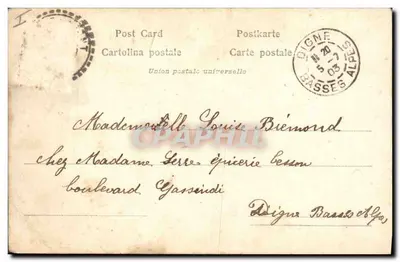 Post Card Postkarte
Cartolina postale Carte postale
Union postale universelle
DIGNE
N 20
5 -7
03
BASSES ALPES
Mademoiselle Louise Brémond
chez Madame Serre épicerie Besson
boulevard Gassendi
Digne Basses Alpes